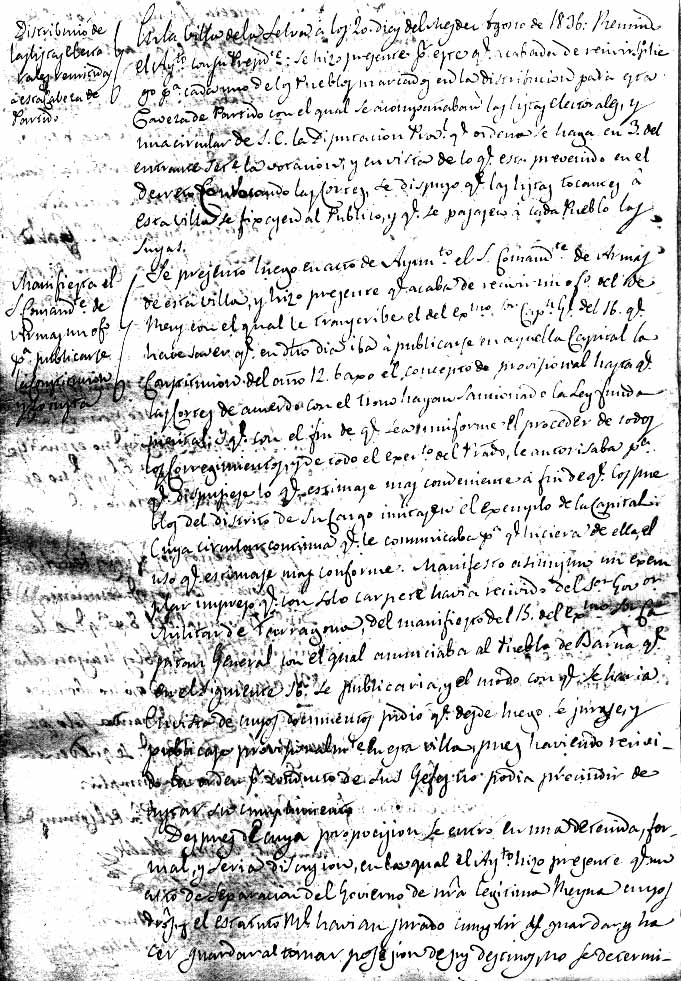 Distribucio de
las listas electo
rales remitidas
a esta Cabeza de
Partido
En la Villa de la Selva à los 20 dias del Mes de Agosto de 1836: Reunido
el Aytto con su Presidte: se hizo presente pr este qe acababa de recivir plie
go pa cada uno de los Pueblos marcados en la distribucion para esta
Cavera de Partido con el qual se acompañaban las listas electorales, y
una circular de S.E. la Diputacion Prral qe ordena se haga en 3. del
entrante Sere la votacion, y en vista de lo qe esta prevenido en el
decreto Convocando las Cortes, se dispuso qe las listas tocantes à
esta villa se fixasen al Publico, y qe se pasasen à cada Pueblo las
suyas.
Manifiesta el
S. Comandte de
Armas un ofo
pa publicarse
la Constitucion
y se ocupa
Se presentó luego en acto de Ayuntto el S. Comandte de Armas
de esta villa, y hizo presente qe acaba de recivir un ofo del de
Reus con el qual le transcribe el del exmo Sr Capn Gl del 16. qe
hace saver qe en dho dia iba à publicarse en aquella Capital la
Constitucion del año 12. baxo el concepto de provisional hasta qe
las Cortes de acuerdo con el trono hayan sancionado la Ley funda
mental; y qe con el fin de qe sea uniforme el proceder de todos
los Corregimientos, y de todo el exerto del Prado, le autorisaba pa
qe dispusiese lo qe estimase mas conveniente à fin de qe los pue
blos del distrito de su Cargo imitasen el exemplo de la Capital
Cuya circular continua qe le comunicaba pa qe hiciera de ella el
uso qe estimase mas conforme. Manifesto asimismo un exem
plar impreso qe con solo carpete havia recivido del Sor Govor
Militar de Tarragona, del manifiesto del 15. del exmo Sr Ca
pitan General con el qual anunciaba al Pueblo de Barna qe
en el siguiente 16 se publicaria, y el modo con qe se haria
En vista de cuyos documentos pidió qe desde luego se jurase, y
publicase provisionalmte en esta villa, pues haviendo recivi-
do la orden pr conducto de sus Gefes no podia prescindir de
instar su cumplimiento
Despues de cuya proposicion se entro en una detenida, for
mal, y seria discusion, en la qual el Aytto hizo presente qe un
acto de separacion del Govierno de nra Legitima Reyna cuyos
dros, y el estatuto Rl havian jurado cumplir y guardar, y ha
cer guardar al tomar posesion de sus destinos, no se determi-